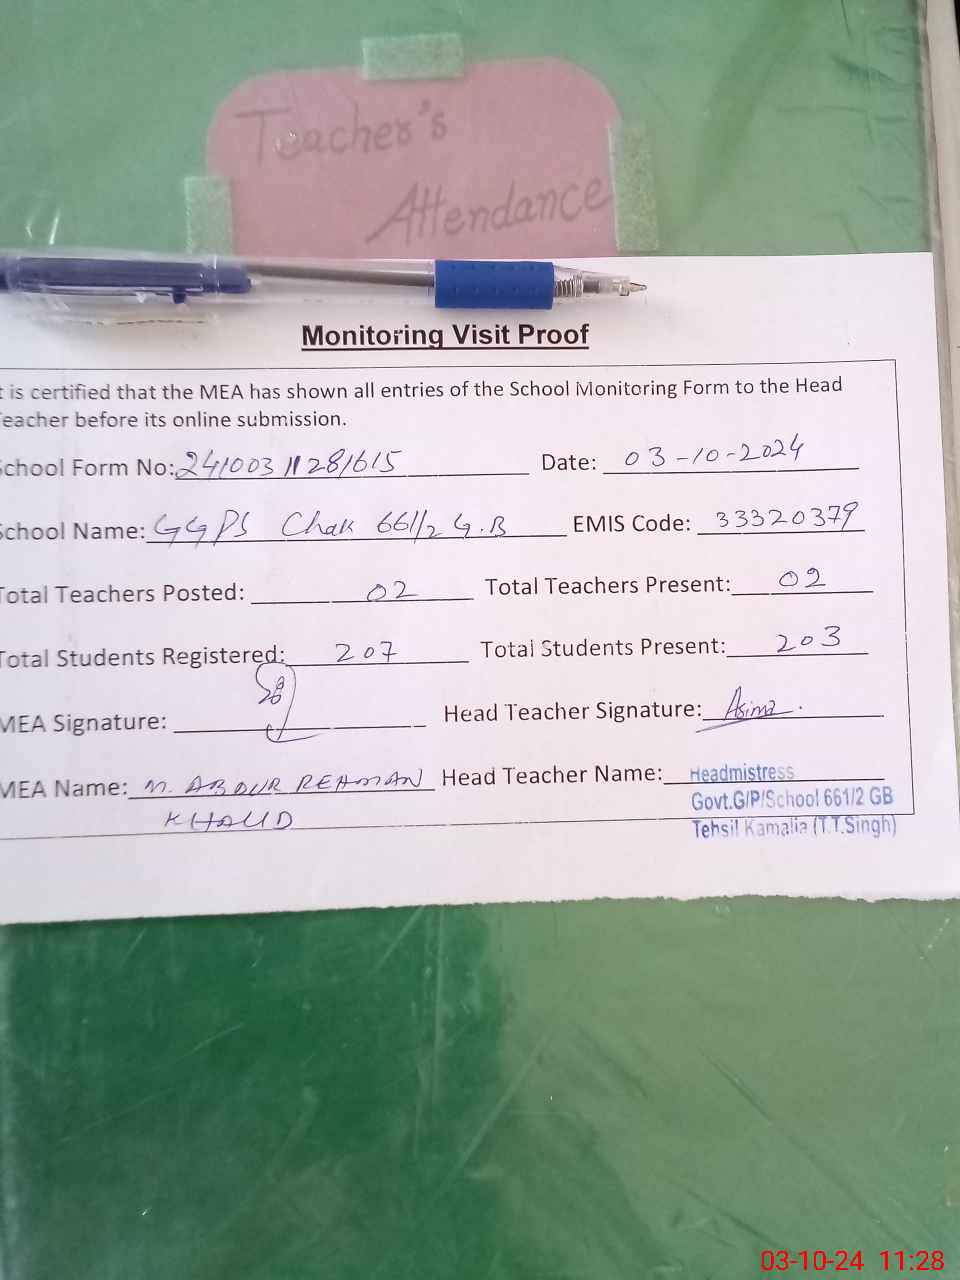 Teacher's
Attendance
Monitoring Visit Proof
t is certified that the MEA has shown all entries of the School Monitoring Form to the Head
eacher before its online submission.
chool Form No: 24100311281615 Date: 03-10-2024
chool Name: GGPS Chak 661/2 G.B EMIS Code: 33320379
Total Teachers Posted: 02 Total Teachers Present: 02
Total Students Registered: 207 Total Students Present: 203
MEA Signature: Head Teacher Signature: Asima.
MEA Name: M. ABDUR REHMAN Head Teacher Name: Headmistress
KHALID
Govt.G/P/School 661/2 GB
Tehsil Kamalia (T.T.Singh)
03-10-24 11:28